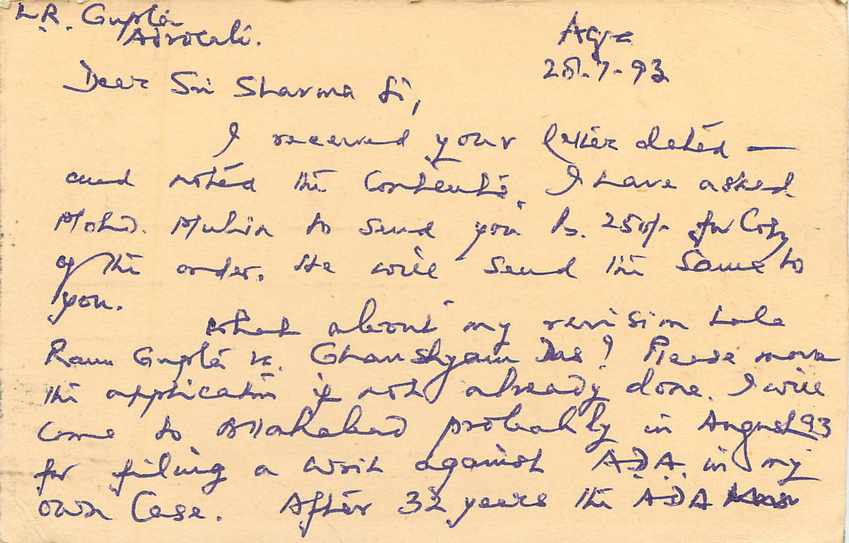 L.R. Gupta
Advocate.
Agra
28-7-93
Dear Sri Sharma Ji,
I received your letter dated —
and noted the contents. I have asked
Mohd. Muhin to send you Rs. 250/- for Copy
of the order. He will send the same to
you.
What about my revision Lala
Ram Gupta vs. Ghanshyam Das? Please move
the application if not already done. I will
come to Allahabad probably in August 93
for filing a writ against A.D.A. in my
own Case. After 32 years the ADA